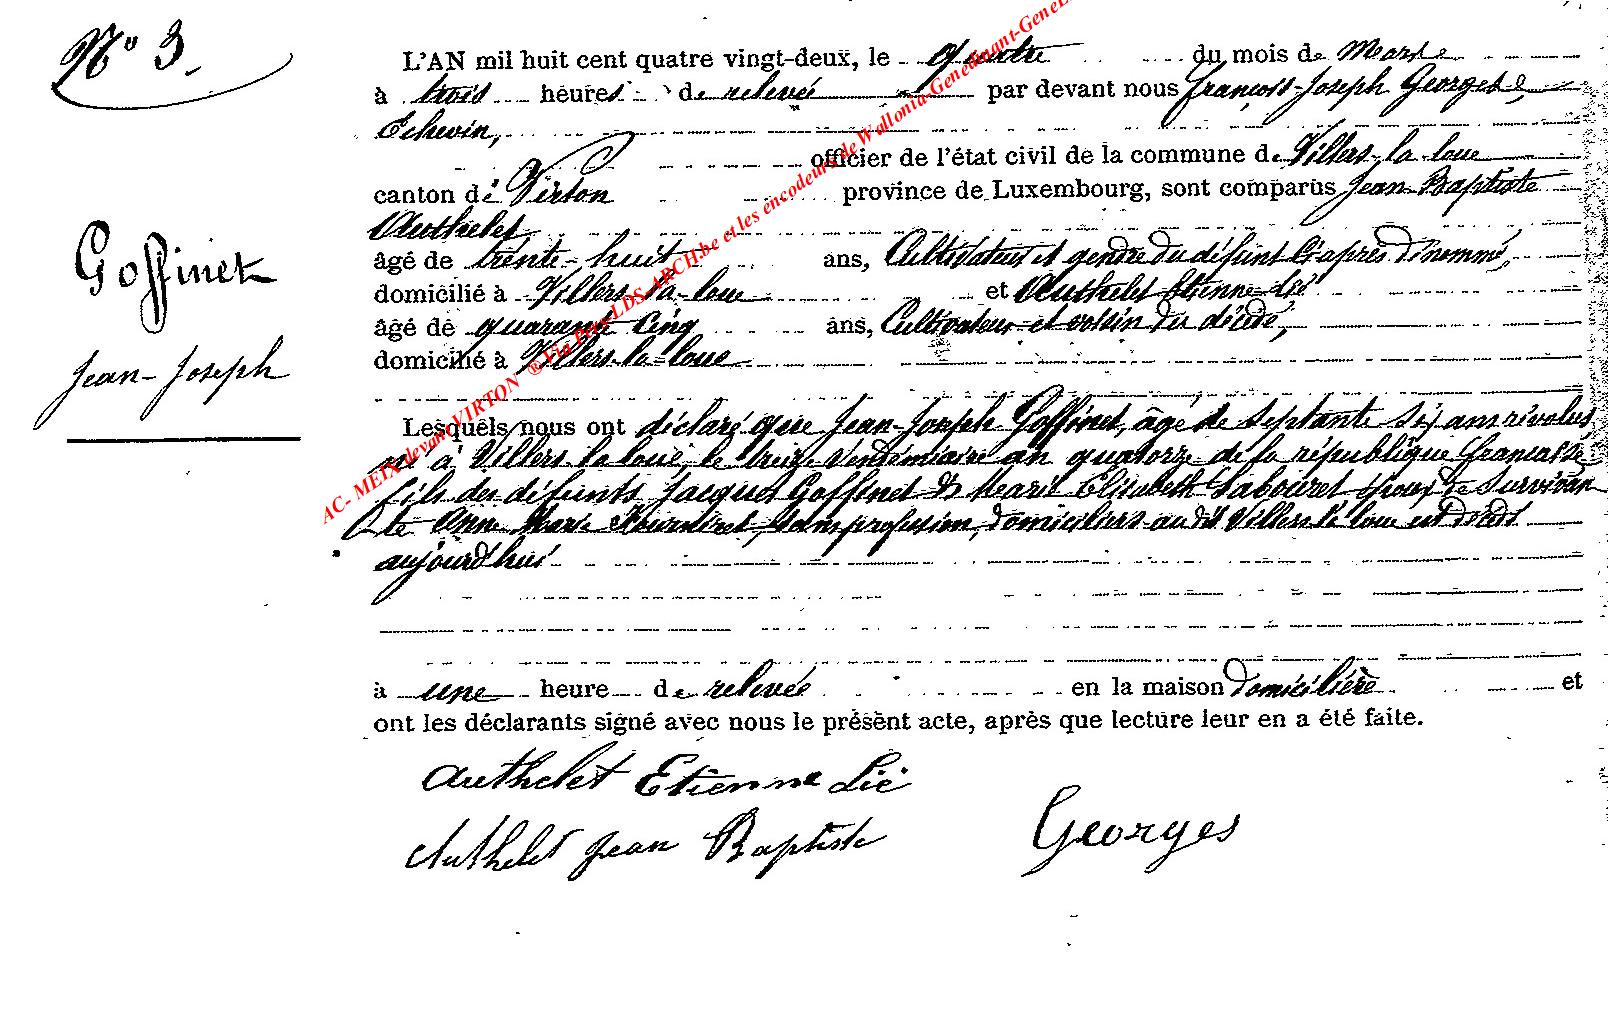 N° 3.
L'AN mil huit cent quatre vingt-deux, le quatre du mois de Mars
à trois heures de relevée par devant nous François-Joseph Georges,
Echevin,
officier de l'état civil de la commune de Villers-la-loue
canton de Virton province de Luxembourg, sont comparus Jean-Baptiste
Authelet
âgé de trente-huit ans, Cultivateur et gendre du défunt ci après dénommé,
domicilié à Villers-la-loue et Authelet Etienne-Lié
âgé de quarante cinq ans, Cultivateur et voisin du décédé,
domicilié à Villers-la-loue
Goffinet
Jean-Joseph
Lesquels nous ont déclaré que Jean-Joseph Goffinet, âgé de septante six ans révolus
né à Villers-la-loue, le treize Vendémiaire an quatorze de la république française
fils des défunts Jacques Goffinet & Marie Elisabeth époux de survivan
te Anne Marie sans profession, domiciliers audit Villers la loue est décédé
aujourd'hui
à une heure de relevée en la maison domicilière et
ont les déclarants signé avec nous le présent acte, après que lecture leur en a été faite.
Authelet Etienne Lié
Authelet Jean Baptiste
Georges
AC- MEIX-devant-VIRTON ® Via Prea-LDS-ARCH.be et les encodeurs de Wallonia-Genedinant-GeneL